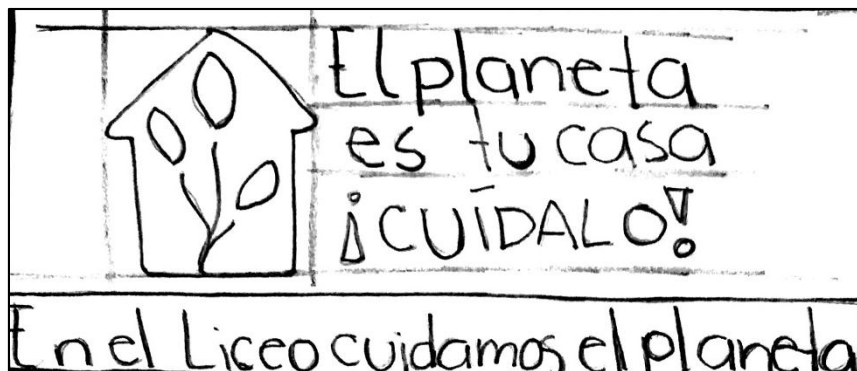 El planeta
es tu casa
¡CUÍDALO!
En el Liceo cuidamos el planeta